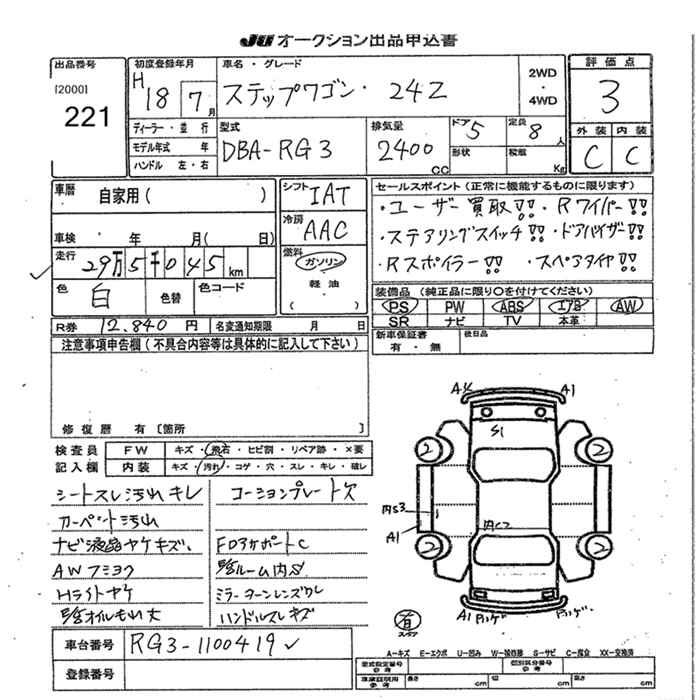 JU オークション出品申込書
出品番号
[2000]
221
初度登録年月
H18 7月
車名・グレード
ステップワゴン・24Z
2WD
・
4WD
評価点
3
外装 内装
C C
ディーラー・並行
モデル年式 年
ハンドル 左・右
型式
DBA-RG3
排気量
2400
CC
ドア 5
形状
定員 8人
積載 Kg
車歴
自家用( )
車検 年 月( 日)
シフト
IAT
冷房
AAC
燃料
ガソリン
・
軽油
( )
セールスポイント(正常に機能するものに限ります)
・ユーザー買取!!・Rワイパー!!
・ステアリングスイッチ!!・ドアバイザー!!
・Rスポイラー!!・スペアタイヤ!!
走行
29万5千045km
色
白
色替
色コード
装備品(純正品に限り○を付けてください)
PS PW ABS エアB AW
SR ナビ TV 本革
R券 12,840円
名変通知期限 月 日
新車保証書
有・無
後日品
注意事項申告欄(不具合内容等は具体的に記入して下さい)
修復歴 有〔箇所 〕
検査員
記入欄
FW
キズ・飛石・ヒビ割・リペア跡・×要
内装
キズ・汚れ・コゲ・穴・スレ・キレ・破レ
シートスレ汚れキレ
コーションプレート欠
カーペント汚れ
ナビ液晶ヤケキズ、
FDアポートC
AWフミヨク
ルーム内S
Hライトヤケ
ミラーターンレンズワレ
オイルもれ大
ハンドルスレキズ
A4 A1
S1
2 2
内S3
A1
内C2
2 2
A1
有
スペア
車台番号
RG3-1100419
登録番号
A-キズ E-エクボ U-凹み W-補修跡 S-サビ C-腐食 XX-交換済
型式指定番号
参考
類別区分番号
参考
車庫証明用
参考
長さ cm 幅 cm 高さ cm